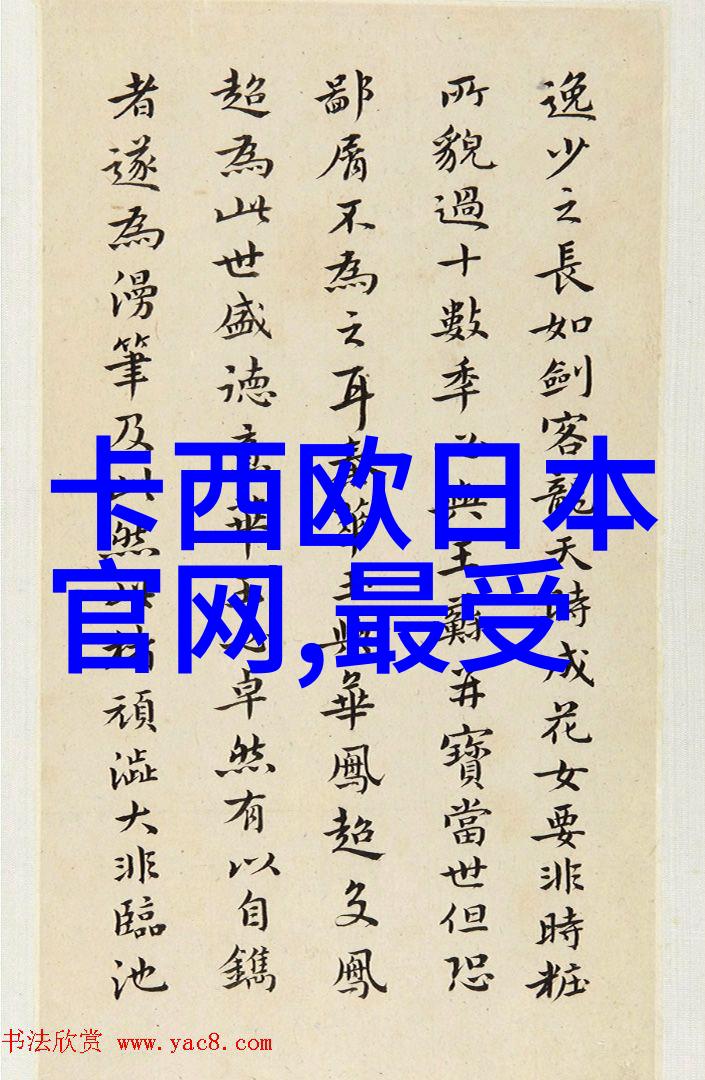 逸少之長如劍客龍天時成花女要非時粧
所貌過十數季與王蘇并寶當世但恐
鄙屑不為之耳華王與華鳳超文鳳
超為此世盛德華卓然有以自鐫
者遂為漫筆及此然頑澁大非臨池
卡西欧日本
官网,最受
书法欣赏 www.yac8.com